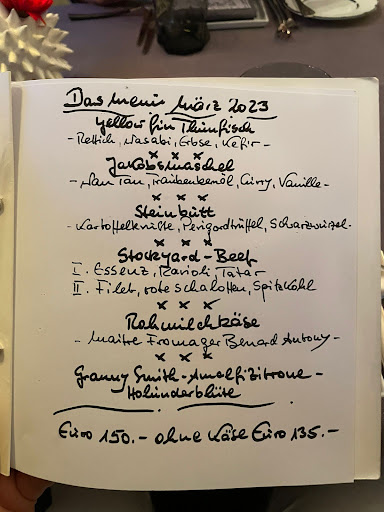 Das Menü März 2023
Yellow fin Thunfisch
- Rettich, Wasabi, Erbse, Kefir -
x x x
Jakobsmuschel
- Wan Tan, Traubenkernöl, Curry, Vanille -
x x x
Steinbutt
- Kartoffelkruste, Perigordtrüffel, Schwarzwurzel -
x x x
Stockyard - Beef
I. Essenz, Ravioli, Tatar
II. Filet, rote Schalotten, Spitzkohl
x x x
Rohmilchkäse
- Maitre Fromager Benard Antony -
x x x
Granny Smith - Amalfizitrone -
Holunderblüte
Euro 150.- ohne Käse Euro 135.-